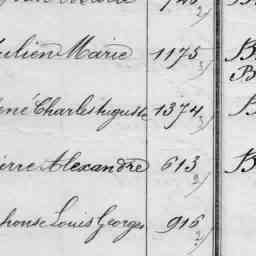 ulien Marie 1175 3/ B
B
ené Charles Auguste 1374 3/ B
ierre Alexandre 613 2/ B
phonse Louis Georges 916 2/